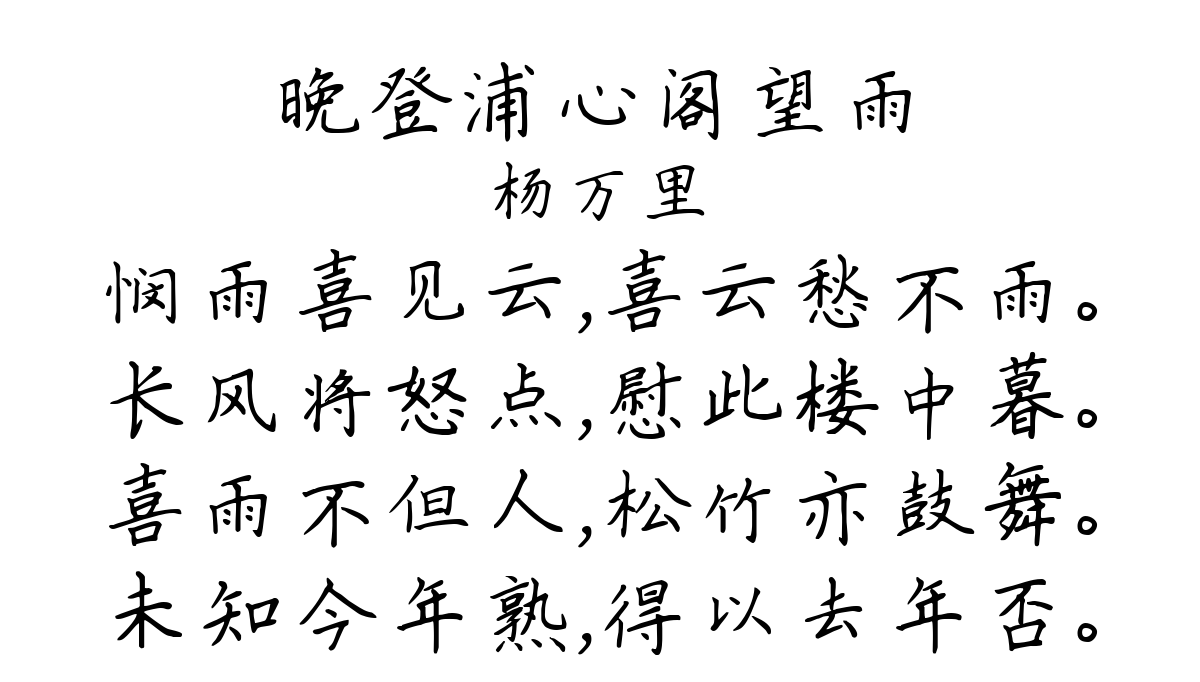 晚登浦心阁望雨
杨万里
悯雨喜见云,喜云愁不雨。
长风将怒点,慰此楼中暮。
喜雨不但人,松竹亦鼓舞。
未知今年熟,得以去年否。